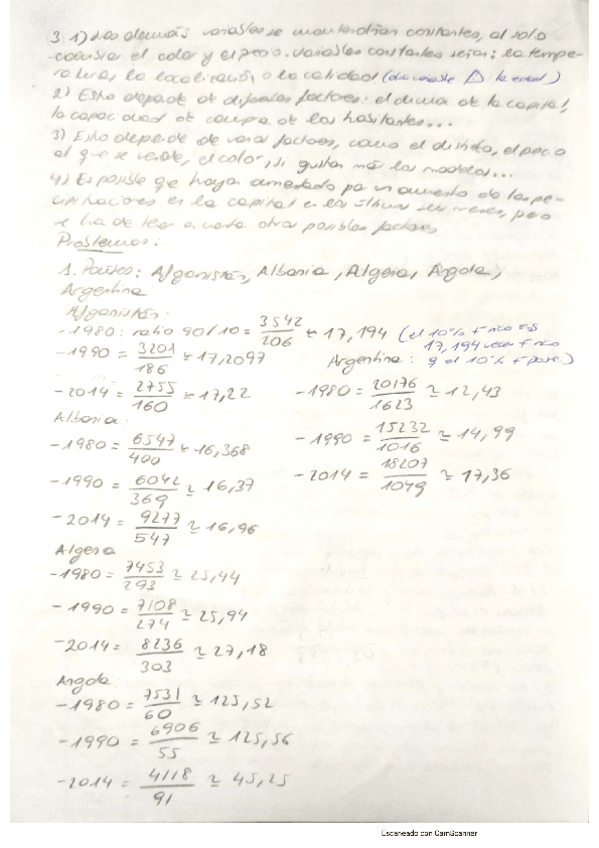 3. 1) Las demás variables se mantendrían constantes, al solo
cambiar el color y el precio. Variables constantes serían: la tempe-
ratura, la localización o la calidad (otra variable la edad)
2) Esto depende de diferentes factores: el clima de la capital,
la capacidad de compra de los habitantes...
3) Esto depende de varios factores, como el diseño, el precio
al que se vende, el color, si gustan más los modelos...
4) Es posible que haya aumentado por un aumento de las pre-
cipitaciones en la capital en las últimas semanas, pero
se ha de tener en cuenta otros posibles factores
Problemas:
1. Países: Afganistán, Albania, Algeria, Angola,
Argentina
Afganistán:
-1980: ratio 90/10 = 3542/206 ≃ 17,194 (el 10% + rico es
17,194 veces + rico
q el 10% + pobre)
-1990 = 3201/186 ≃ 17,2097
-2014 = 2755/160 ≃ 17,22
Albania:
-1980 = 6547/400 ≃ 16,368
-1990 = 6042/369 ≃ 16,37
-2014 = 9277/547 ≃ 16,96
Algeria
-1980 = 7453/293 ≃ 25,44
-1990 = 7108/274 ≃ 25,94
-2014 = 8236/303 ≃ 27,18
Angola
-1980 = 7531/60 ≃ 125,52
-1990 = 6906/55 ≃ 125,56
-2014 = 4118/91 ≃ 45,25
Argentina:
-1980 = 20176/1623 ≃ 12,43
-1990 = 15232/1016 ≃ 14,99
-2014 = 18207/1049 ≃ 17,36
Escaneado con CamScanner